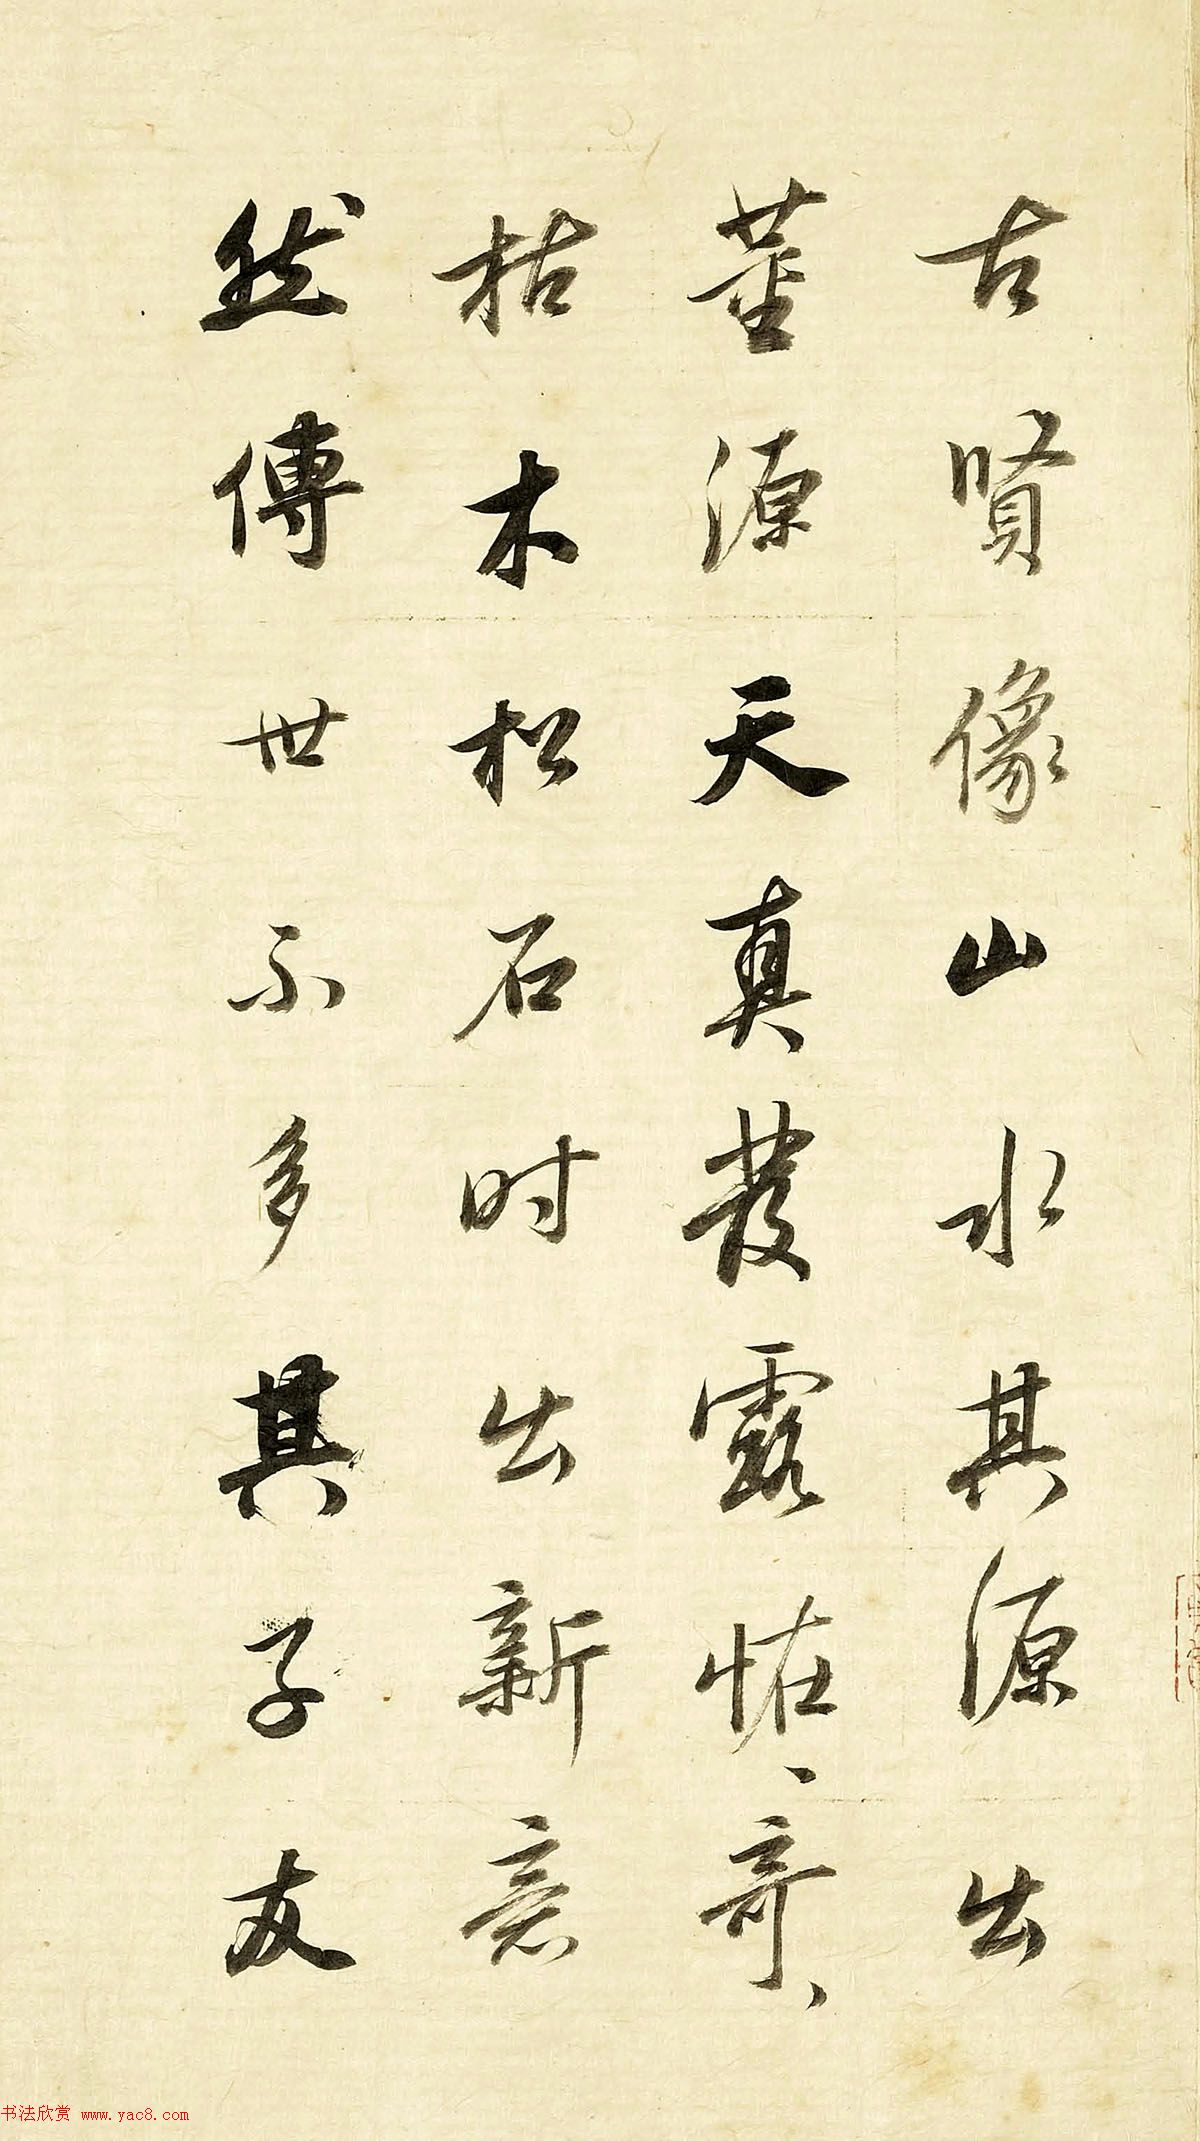 古賢像山水其源出
董源天真發露怪、奇、
枯木松石时出新意
然傳世不多其子友
书法欣赏 www.yac8.com